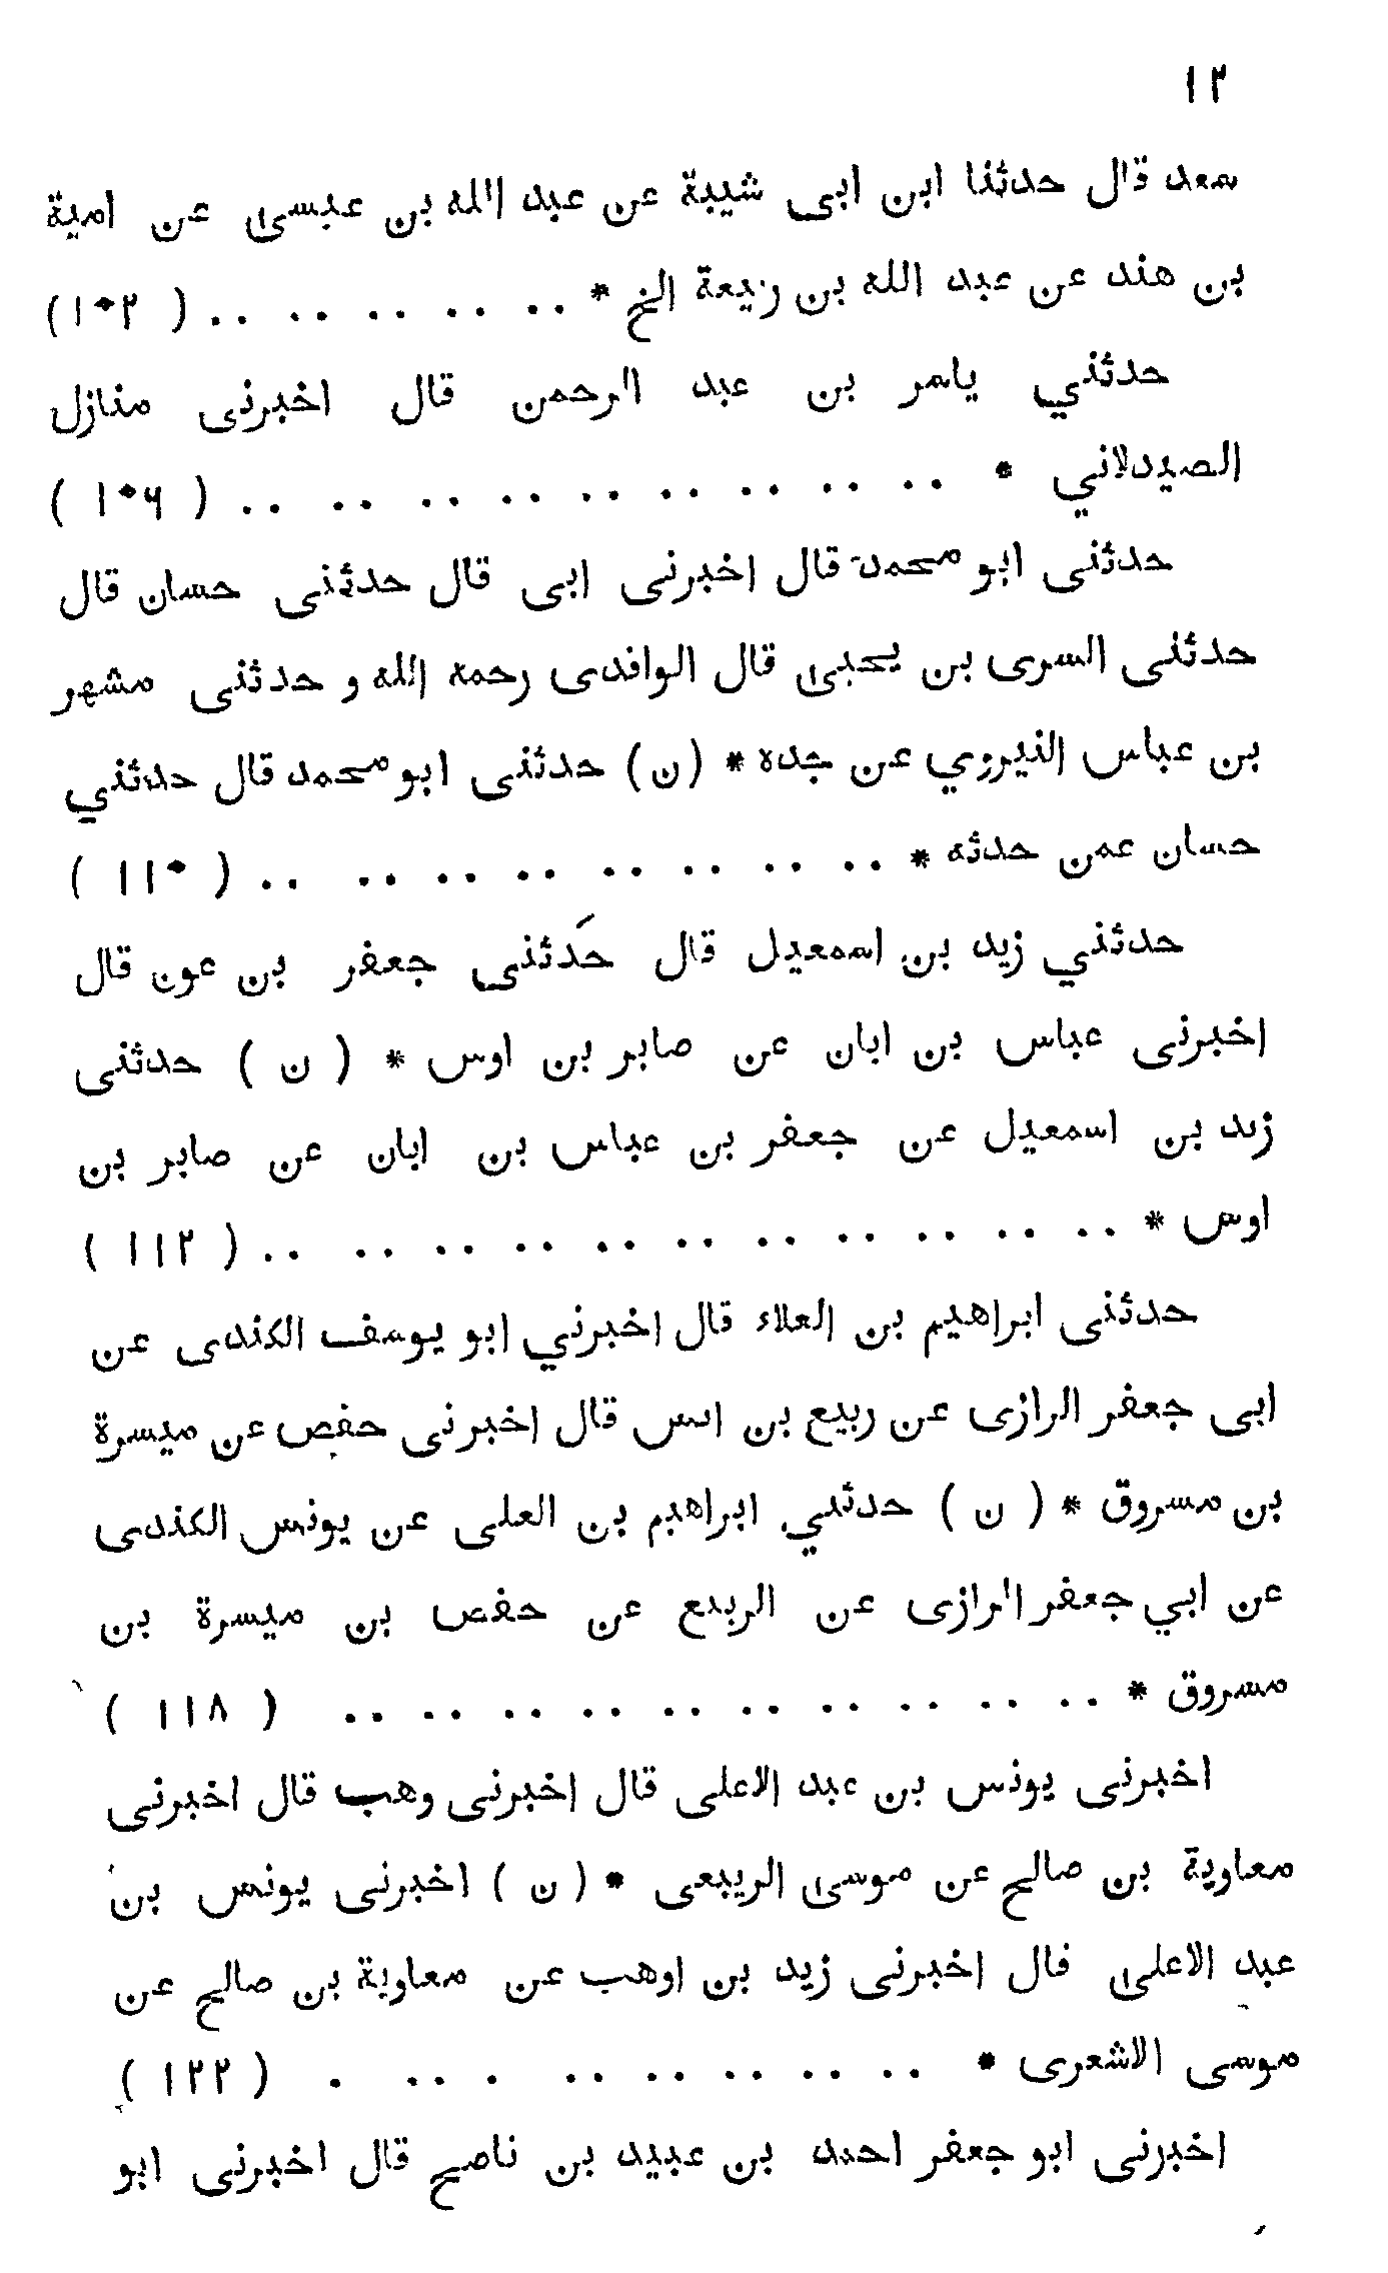 ١٢
سعد قال حدثنا ابن ابى شيبة عن عبد الله بن عيسى عن امية
بن هند عن عبد الله بن زيعة الخ * .. .. .. .. .. ( ١٠٢ )
حدثني ياسر بن عبد الرحمن قال اخبرنى منازل
الصيدلاني * .. .. .. .. .. .. .. .. .. ( ١٠٦ )
حدثنى ابو محمد قال اخبرنى ابى قال حدثنى حسان قال
حدثنى السرى بن يحيى قال الواقدى رحمة الله و حدثنى مشهر
بن عباس النيرزي عن جده * (ن) حدثنى ابو محمد قال حدثني
حسان عمن حدثه * .. .. .. .. .. .. .. .. ( ١١٠ )
حدثني زيد بن اسمعيل قال حدثنى جعفر بن عون قال
اخبرنى عباس بن ابان عن صابر بن اوس * ( ن ) حدثنى
زيد بن اسمعيل عن جعفر بن عباس بن ابان عن صابر بن
اوس * .. .. .. .. .. .. .. .. .. .. .. ( ١١٢ )
حدثنى ابراهيم بن العلاء قال اخبرني ابو يوسف الكندى عن
ابى جعفر الرازى عن ربيع بن انس قال اخبرنى حفص عن ميسرة
بن مسروق * ( ن ) حدثني ابراهيم بن العلى عن يونس الكندى
عن ابي جعفر الرازى عن الربيع عن حفص بن ميسرة بن
مسروق * .. .. .. .. .. .. .. .. .. .. ( ١١٨ )
اخبرنى يونس بن عبد الاعلى قال اخبرنى وهب قال اخبرنى
معاوية بن صالح عن موسى الربيعى * ( ن ) اخبرنى يونس بن
عبد الاعلى قال اخبرنى زيد بن اوهب عن معاوية بن صالح عن
موسى الاشعرى * .. .. .. .. .. . .. . ( ١٢٢ )
اخبرنى ابو جعفر احمد بن عبيد بن ناصح قال اخبرنى ابو